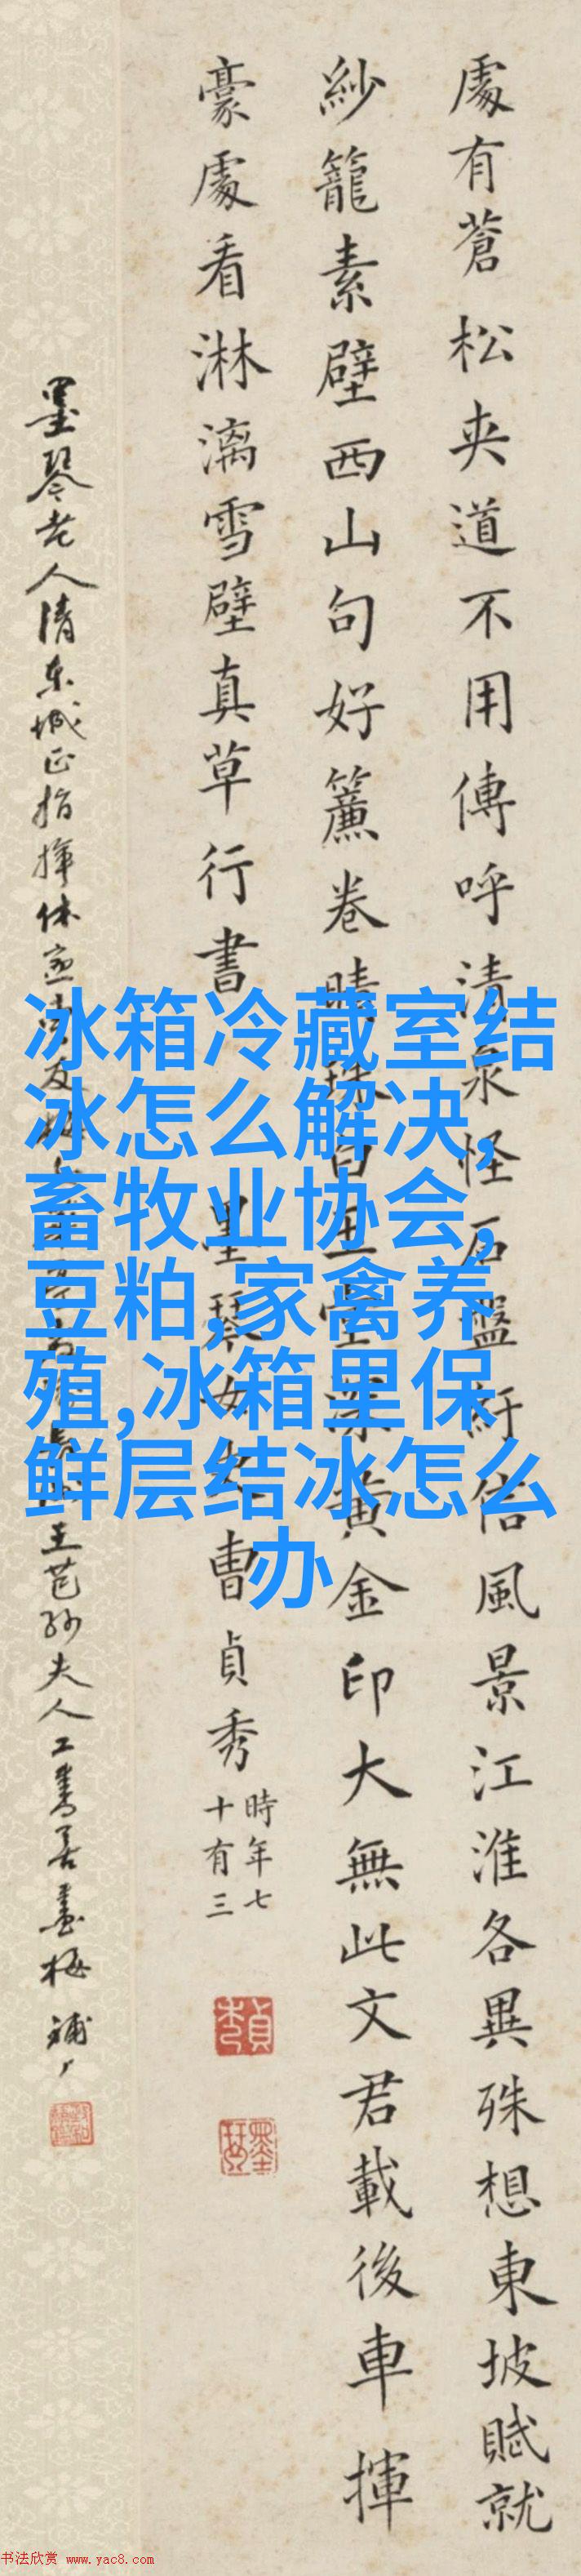 處有蒼松夾道不用傳呼清泉怪石盤紆信風景江淮各異殊想東坡賦就
紗籠素壁西山句好簾卷晴珠白玉堂深黃金印大無此文君載後車揮
豪處看淋漓雪壁真草行書
墨琴女史曹貞秀
時年七
十有三
墨琴老人清東城正指揮
王芑孫夫人工書善畫梅
冰箱冷藏室结
冰怎么解决,
畜牧业协会,
豆粕,家禽养
殖,冰箱里保
鲜层结冰怎么
办
书法欣赏 www.yac8.com